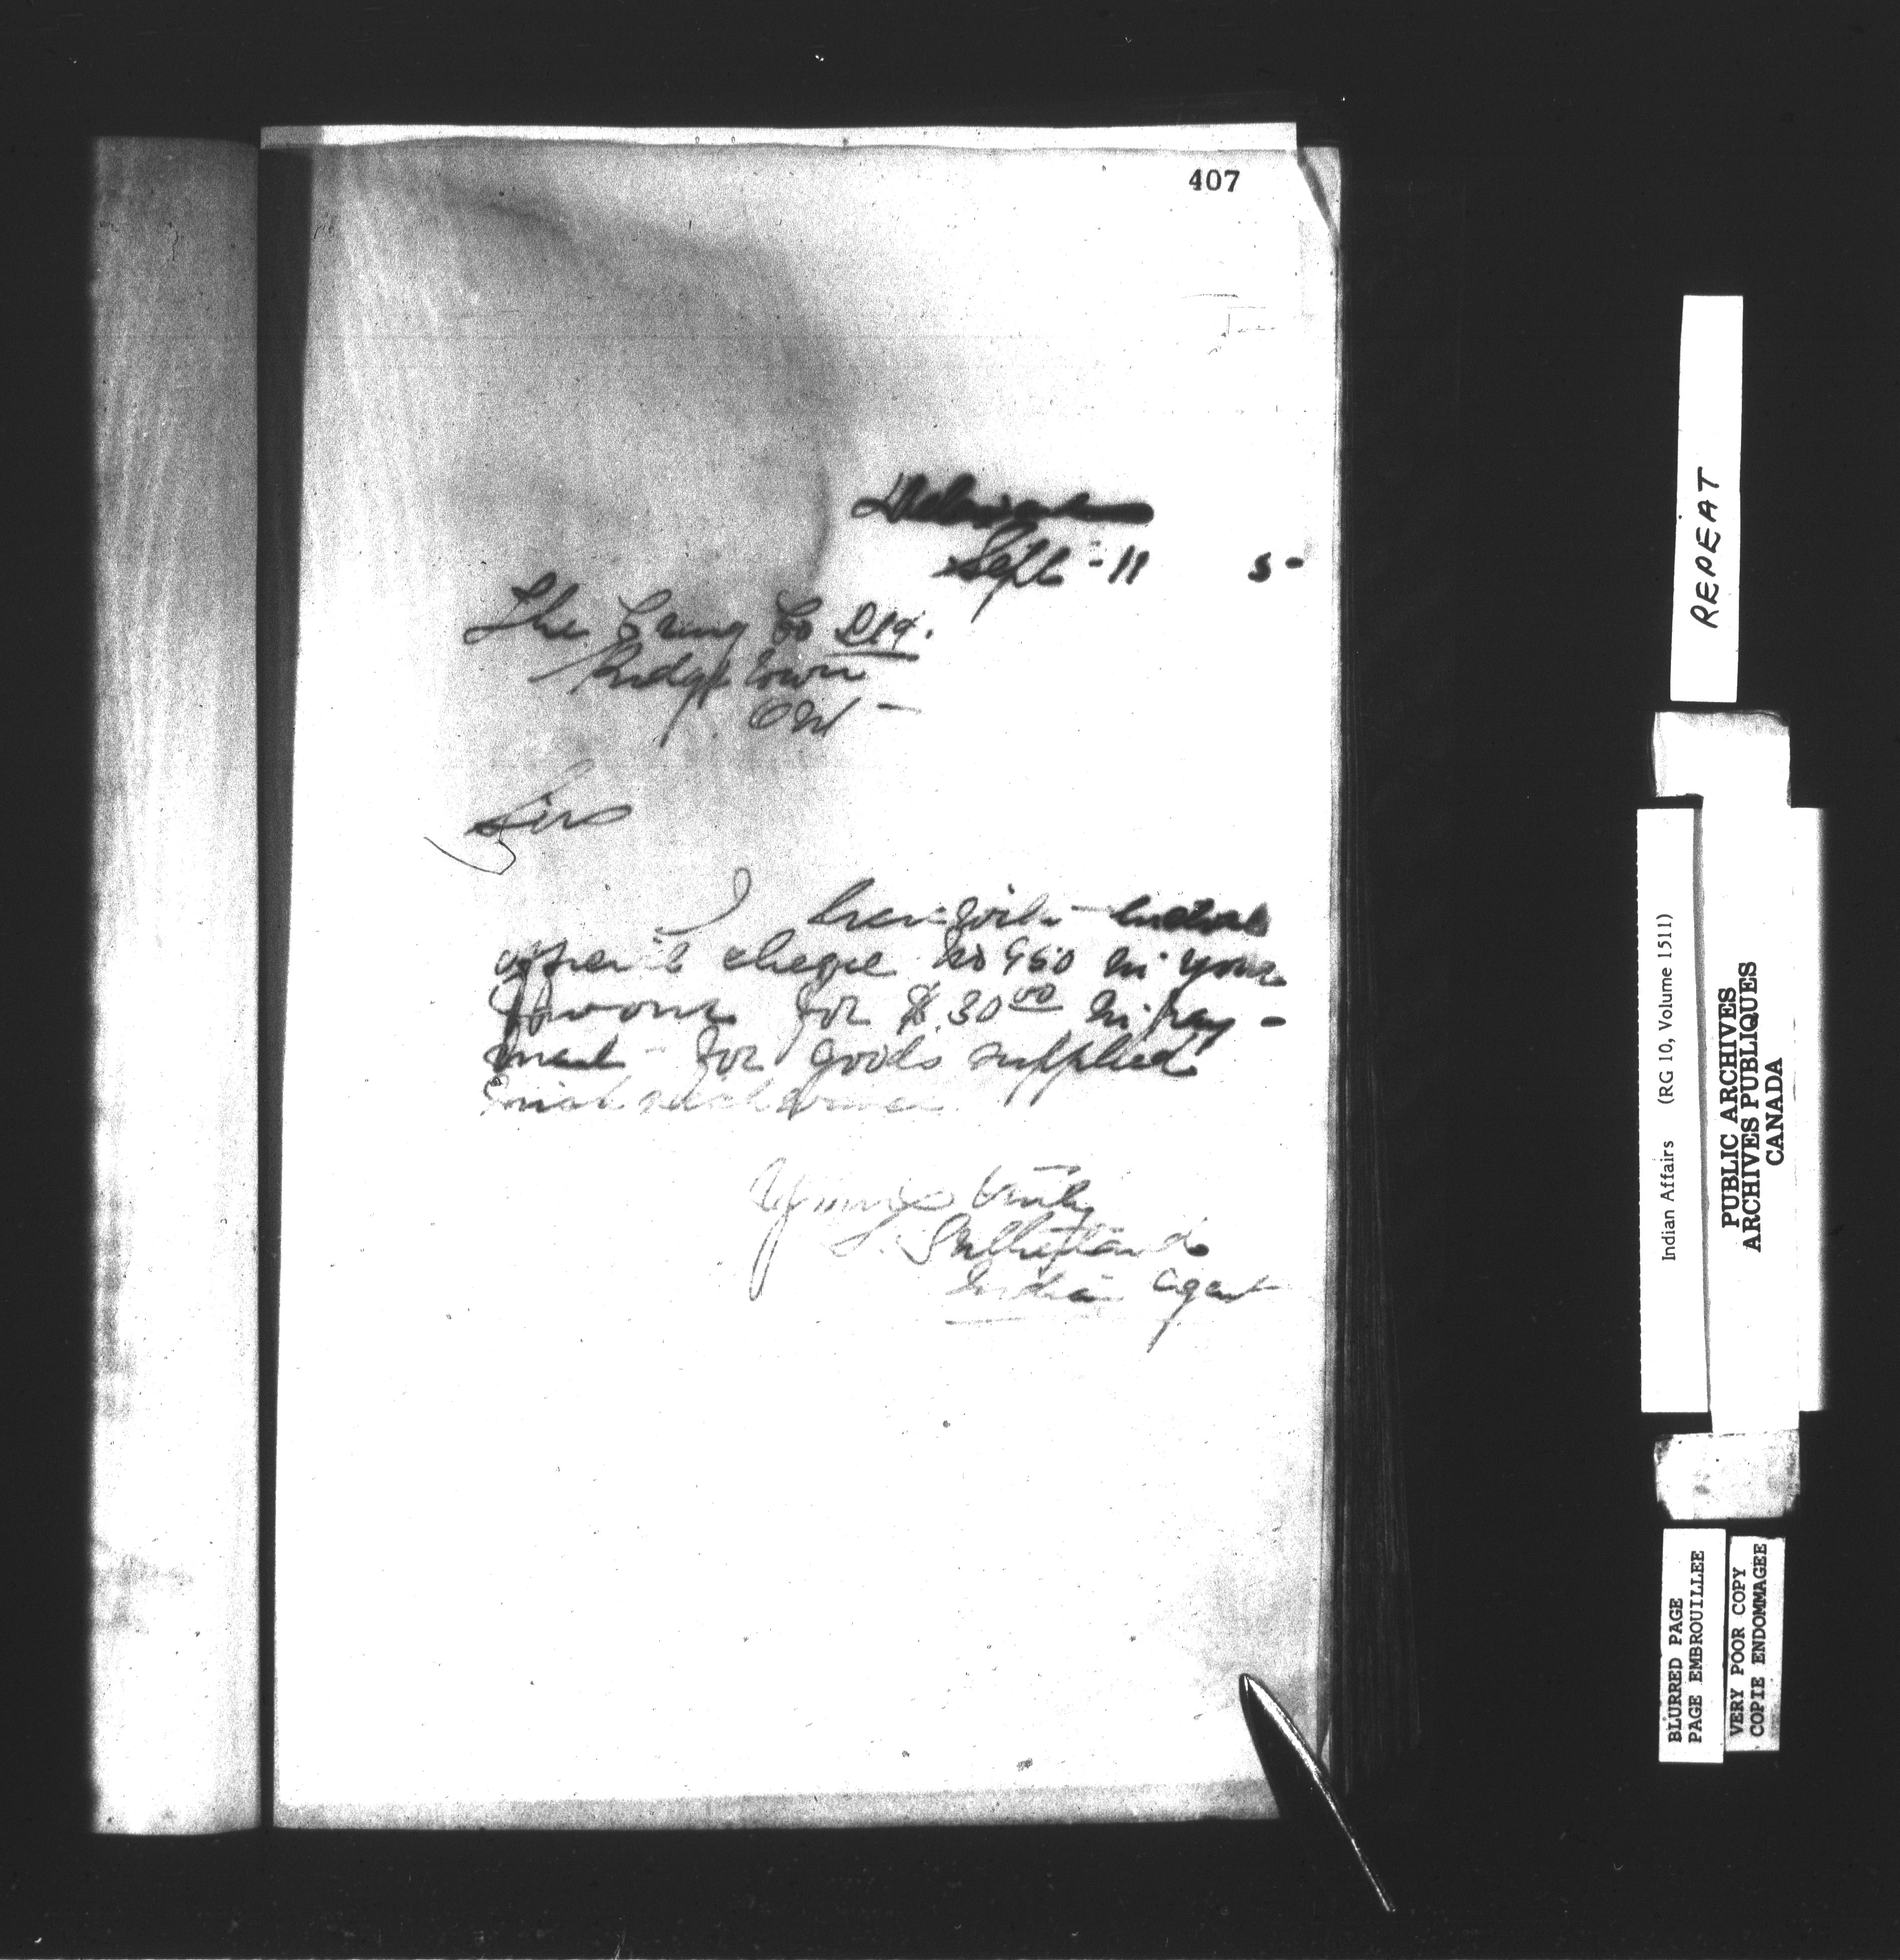 407
Delaware
Sept - 11 5-
The Co Ltd.
Ridgetown
Ont -
Sirs
I herewith enclose
official cheque No 960 in your
favour for $ 30 00 in pay -
ment for goods supplied
Yours truly
S. Sutherland
Indian Agent
REPEAT
Indian Affairs (RG 10, Volume 1511)
PUBLIC ARCHIVES
ARCHIVES PUBLIQUES
CANADA
BLURRED PAGE
PAGE EMBROUILLEE
VERY POOR COPY
COPIE ENDOMMAGEE